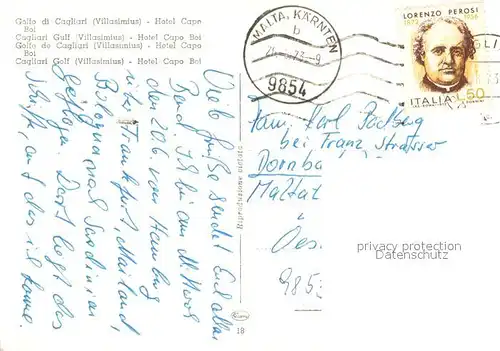 Golfo di Cagliari (Villasimius) - Hotel Capo
Boi
Cagliari Gulf (Villasimius) - Hotel Capo Boi
Golfe de Cagliari (Villasimius) - Hotel Capo
Boi
Cagliari Golf (Villasimius) - Hotel Capo Boi
MALTA, KÄRNTEN
b
9854
LORENZO PEROSI
1872 1956
ITALIA L.50
Viele Grüße sendet Euch allen
René. Ich bin am Mittwoch
den 20.6. von Hamburg
über Frankfurt, Mailand,
Bologna nach Sardinien
geflogen. Dort liegt das
Schiff, auf das ich komme.
Fam. Karl
bei Franz Strasser
Dornba
Maltat
Oes
985
privacy protection
Datenschutz
18